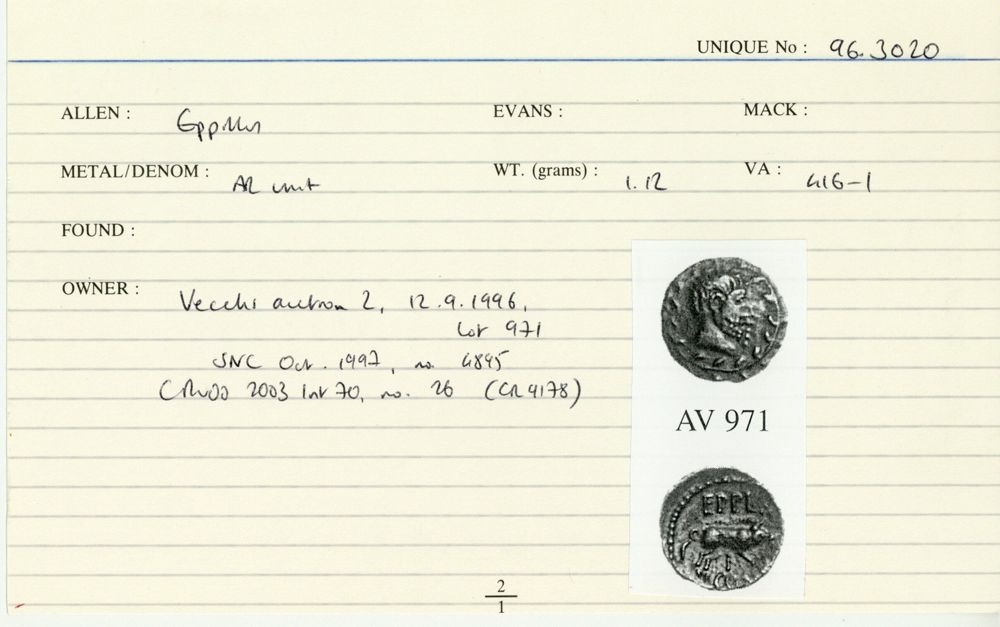 UNIQUE No : 96.3020
ALLEN : Eppillus EVANS : MACK :
METAL/DENOM : AR unit WT. (grams) : 1.12 VA : 416-1
FOUND :
OWNER : Vecchi auction 2, 12.9.1996,
Lot 971
SNC Oct. 1997, no. 4895
2003 list 70, no. 26 (CR 4178)
AV 971
EPPIL
2
1